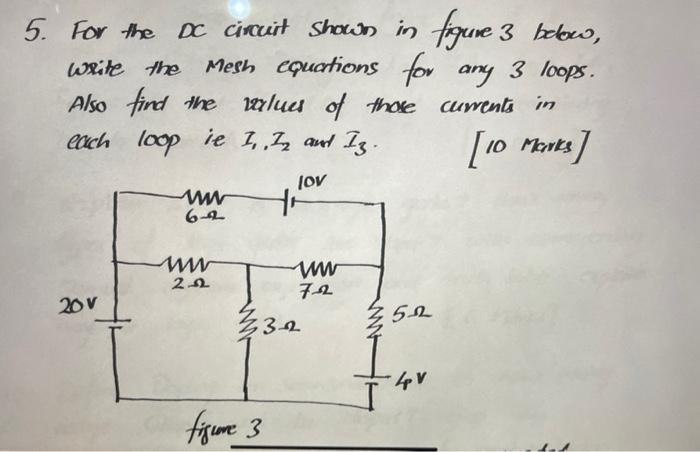 5. For the DC circuit shown in figure 3 below,
write the Mesh equations for any 3 loops.
Also find the values of those currents in
each loop ie I₁, I₂ and I₃. [10 Marks]
10V
6Ω
2Ω
7Ω
20V
3Ω
5Ω
4V
figure 3